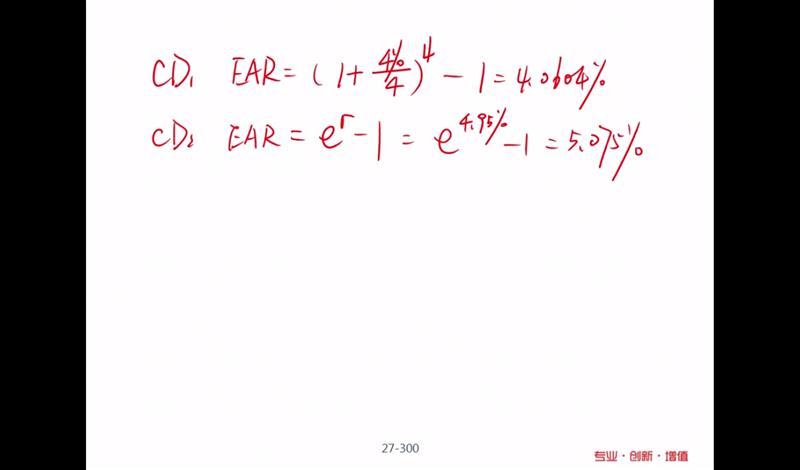 CD₁ EAR = (1 + 4%/4)⁴ - 1 = 4.0604%
CD₂ EAR = e^r - 1 = e^4.95% - 1 = 5.075%
27-300
专业·创新·增值